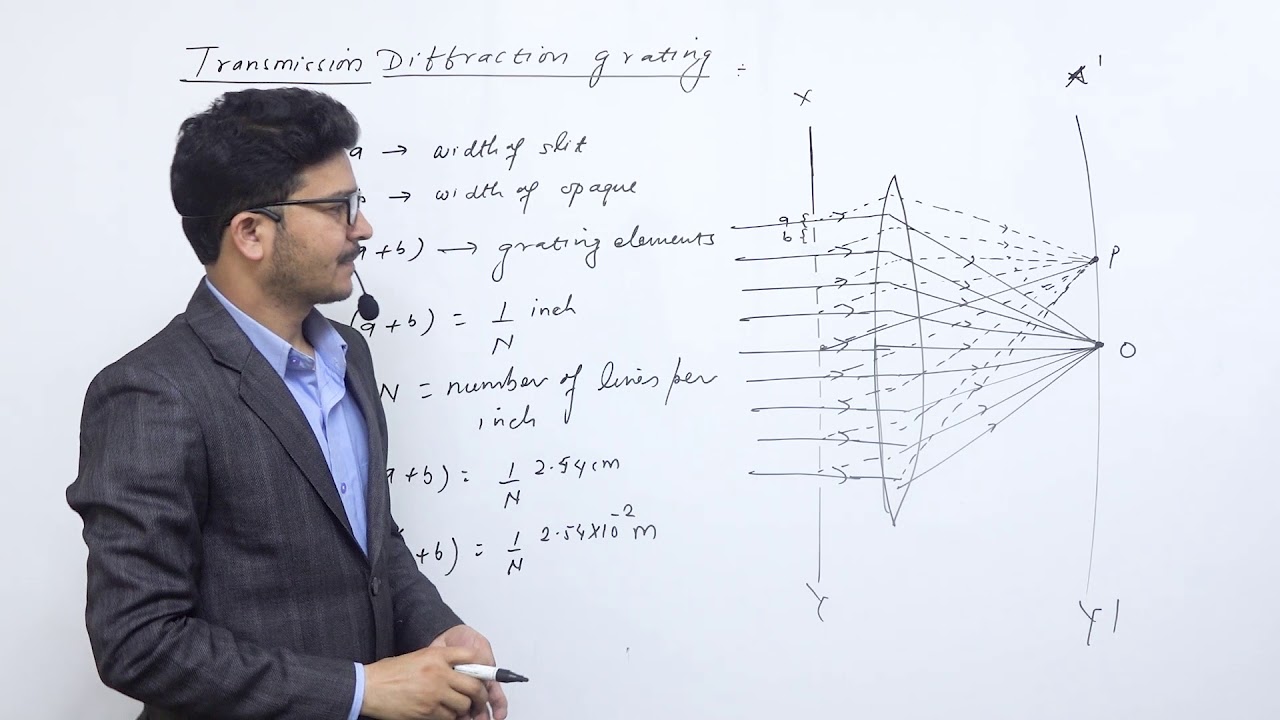 Transmission Diffraction grating :
a → width of slit
→ width of opaque
a+b) → grating elements
(a+b) = 1/N inch
N = number of lines per
inch
a+b) = 1/N 2.54cm
+b) = 1/N 2.54×10⁻² m
X
a {
b {
Y
A'
P
O
Y'